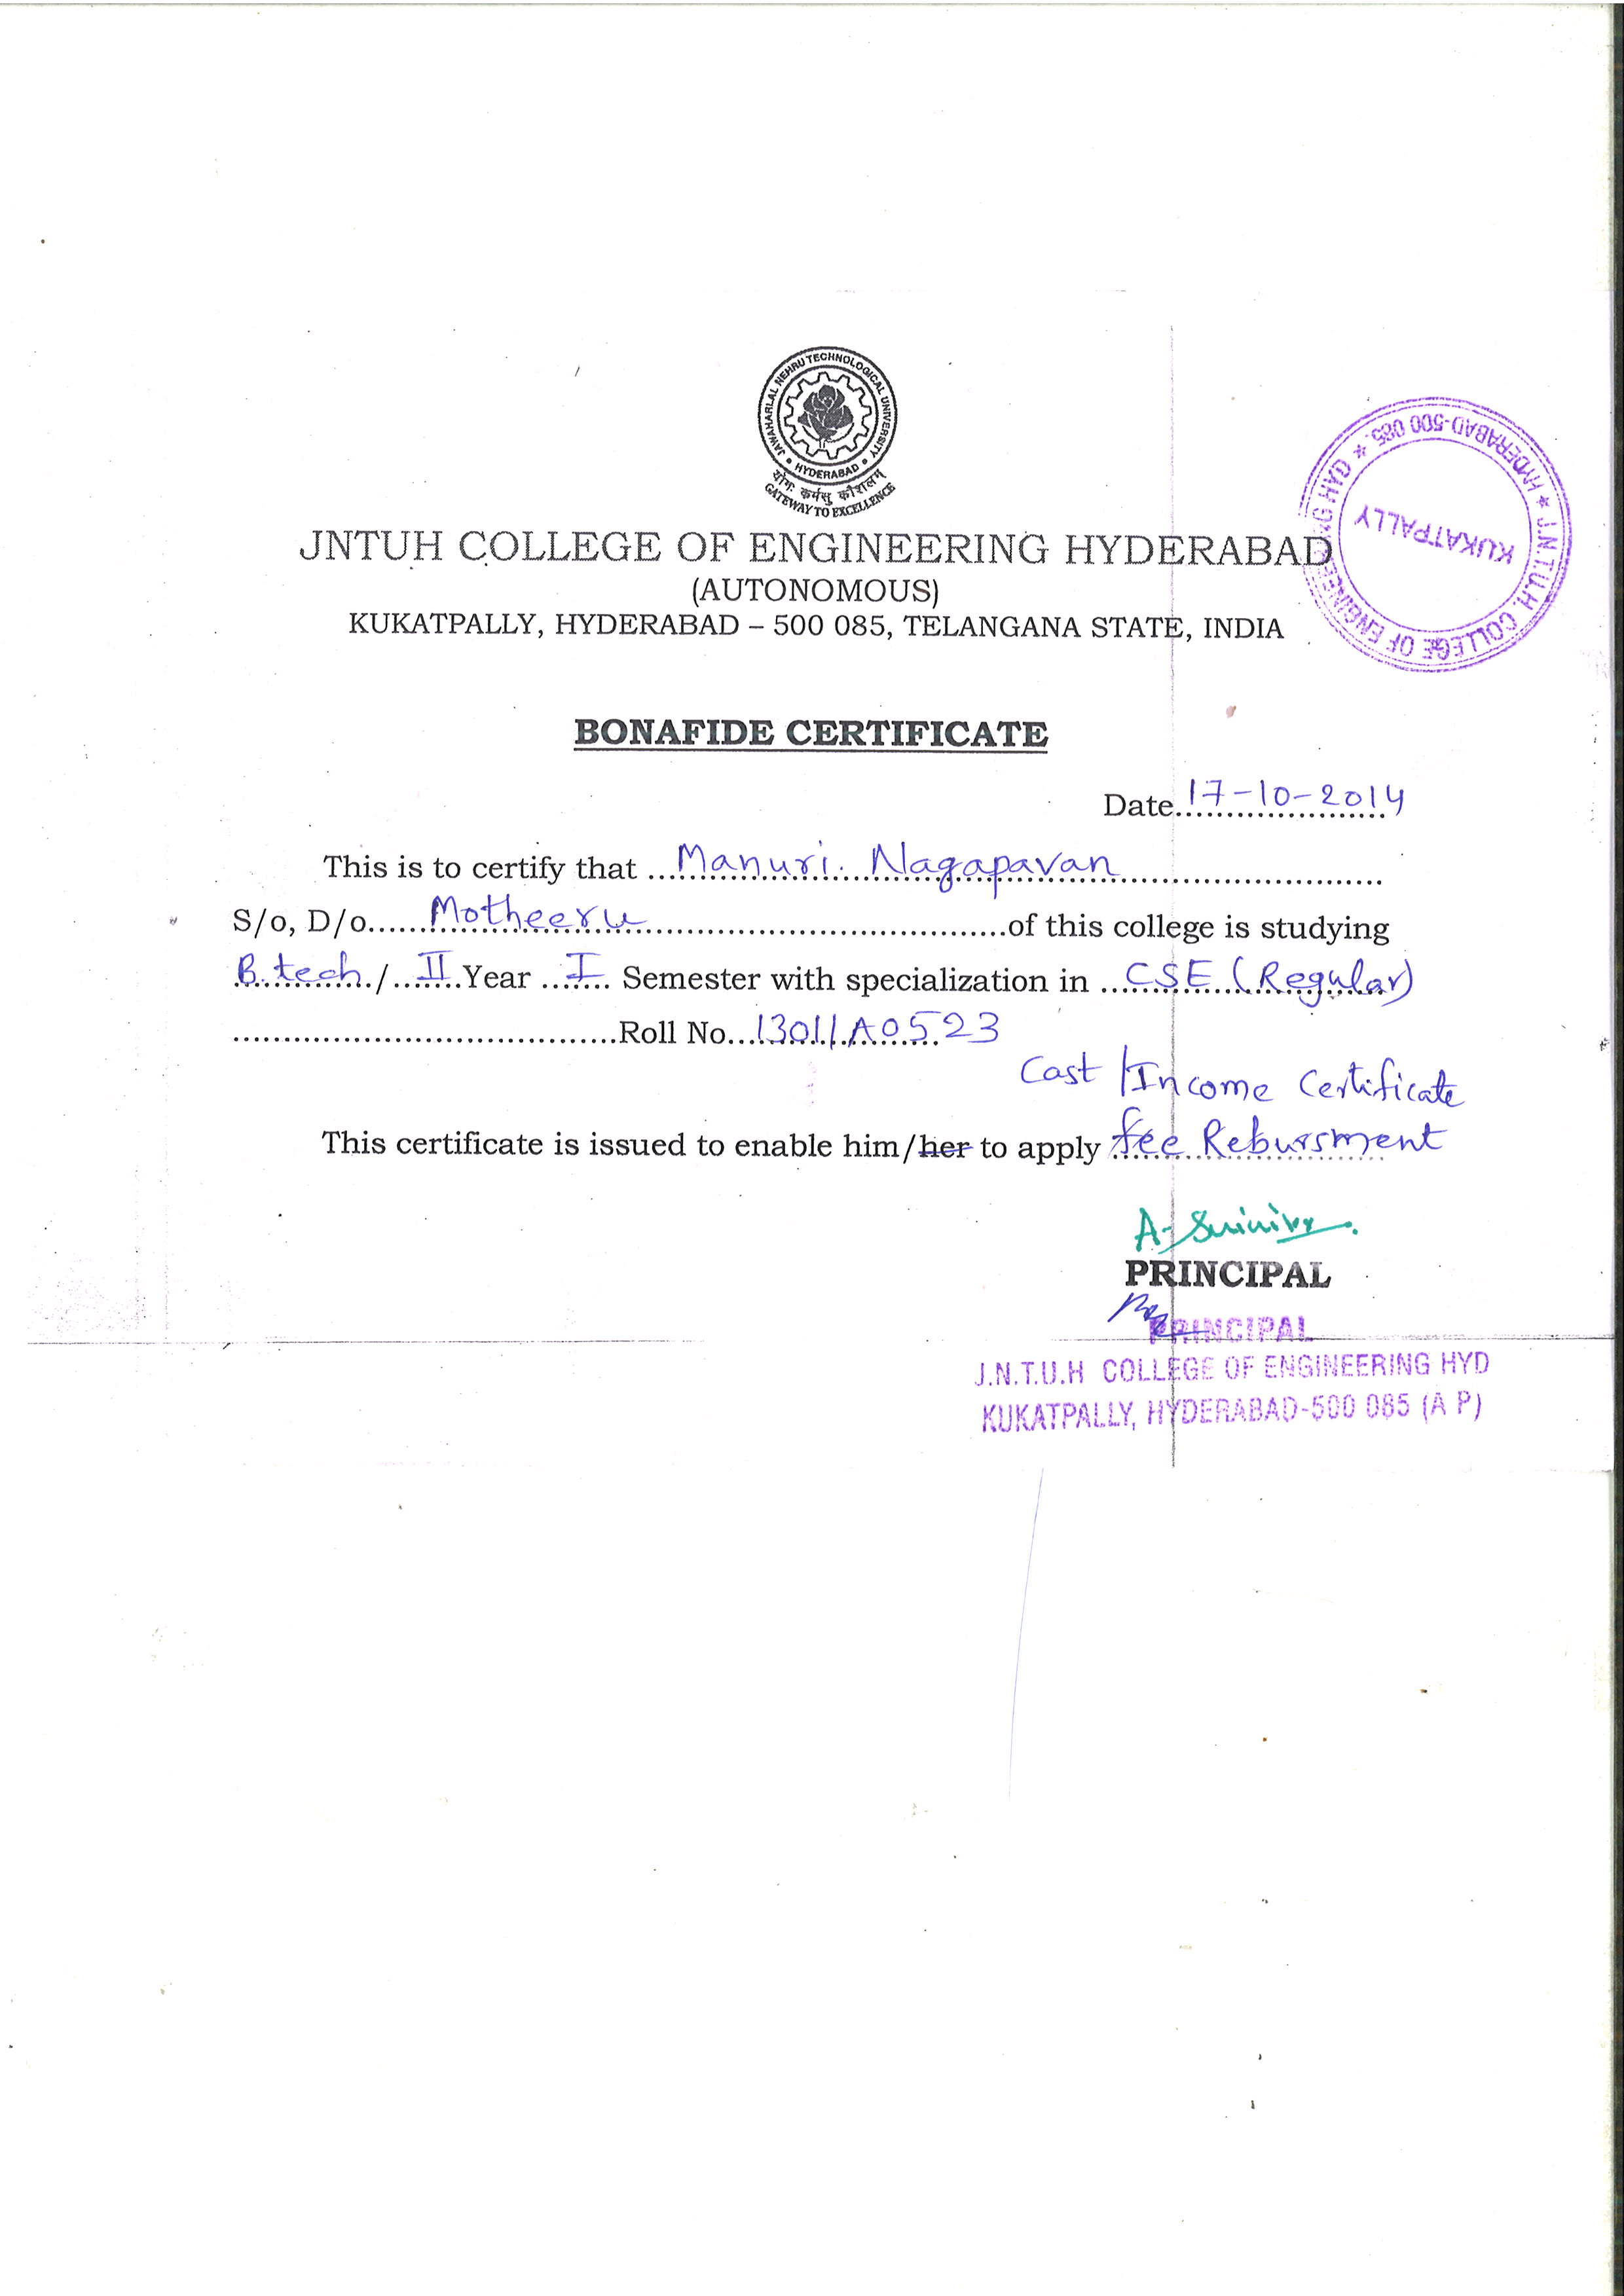 JAWAHARLAL NEHRU TECHNOLOGICAL UNIVERSITY
HYDERABAD
योगः कर्मसु कौशलम्
GATEWAY TO EXCELLENCE
JNTUH COLLEGE OF ENGINEERING HYDERABAD
(AUTONOMOUS)
KUKATPALLY, HYDERABAD – 500 085, TELANGANA STATE, INDIA
J.N.T.U.H. COLLEGE OF ENGINEERING HYD
HYDERABAD-500 085.
KUKATPALLY
BONAFIDE CERTIFICATE
Date 17-10-2014
This is to certify that Manuri. Nagapavan
S/o, D/o Motheeru of this college is studying
B.tech / II Year I Semester with specialization in CSE (Regular)
Roll No. 13011A0523
Cast / Income Certificate
This certificate is issued to enable him/her to apply fee Rebursment
PRINCIPAL
PRINCIPAL
J.N.T.U.H COLLEGE OF ENGINEERING HYD
KUKATPALLY, HYDERABAD-500 085 (A P)